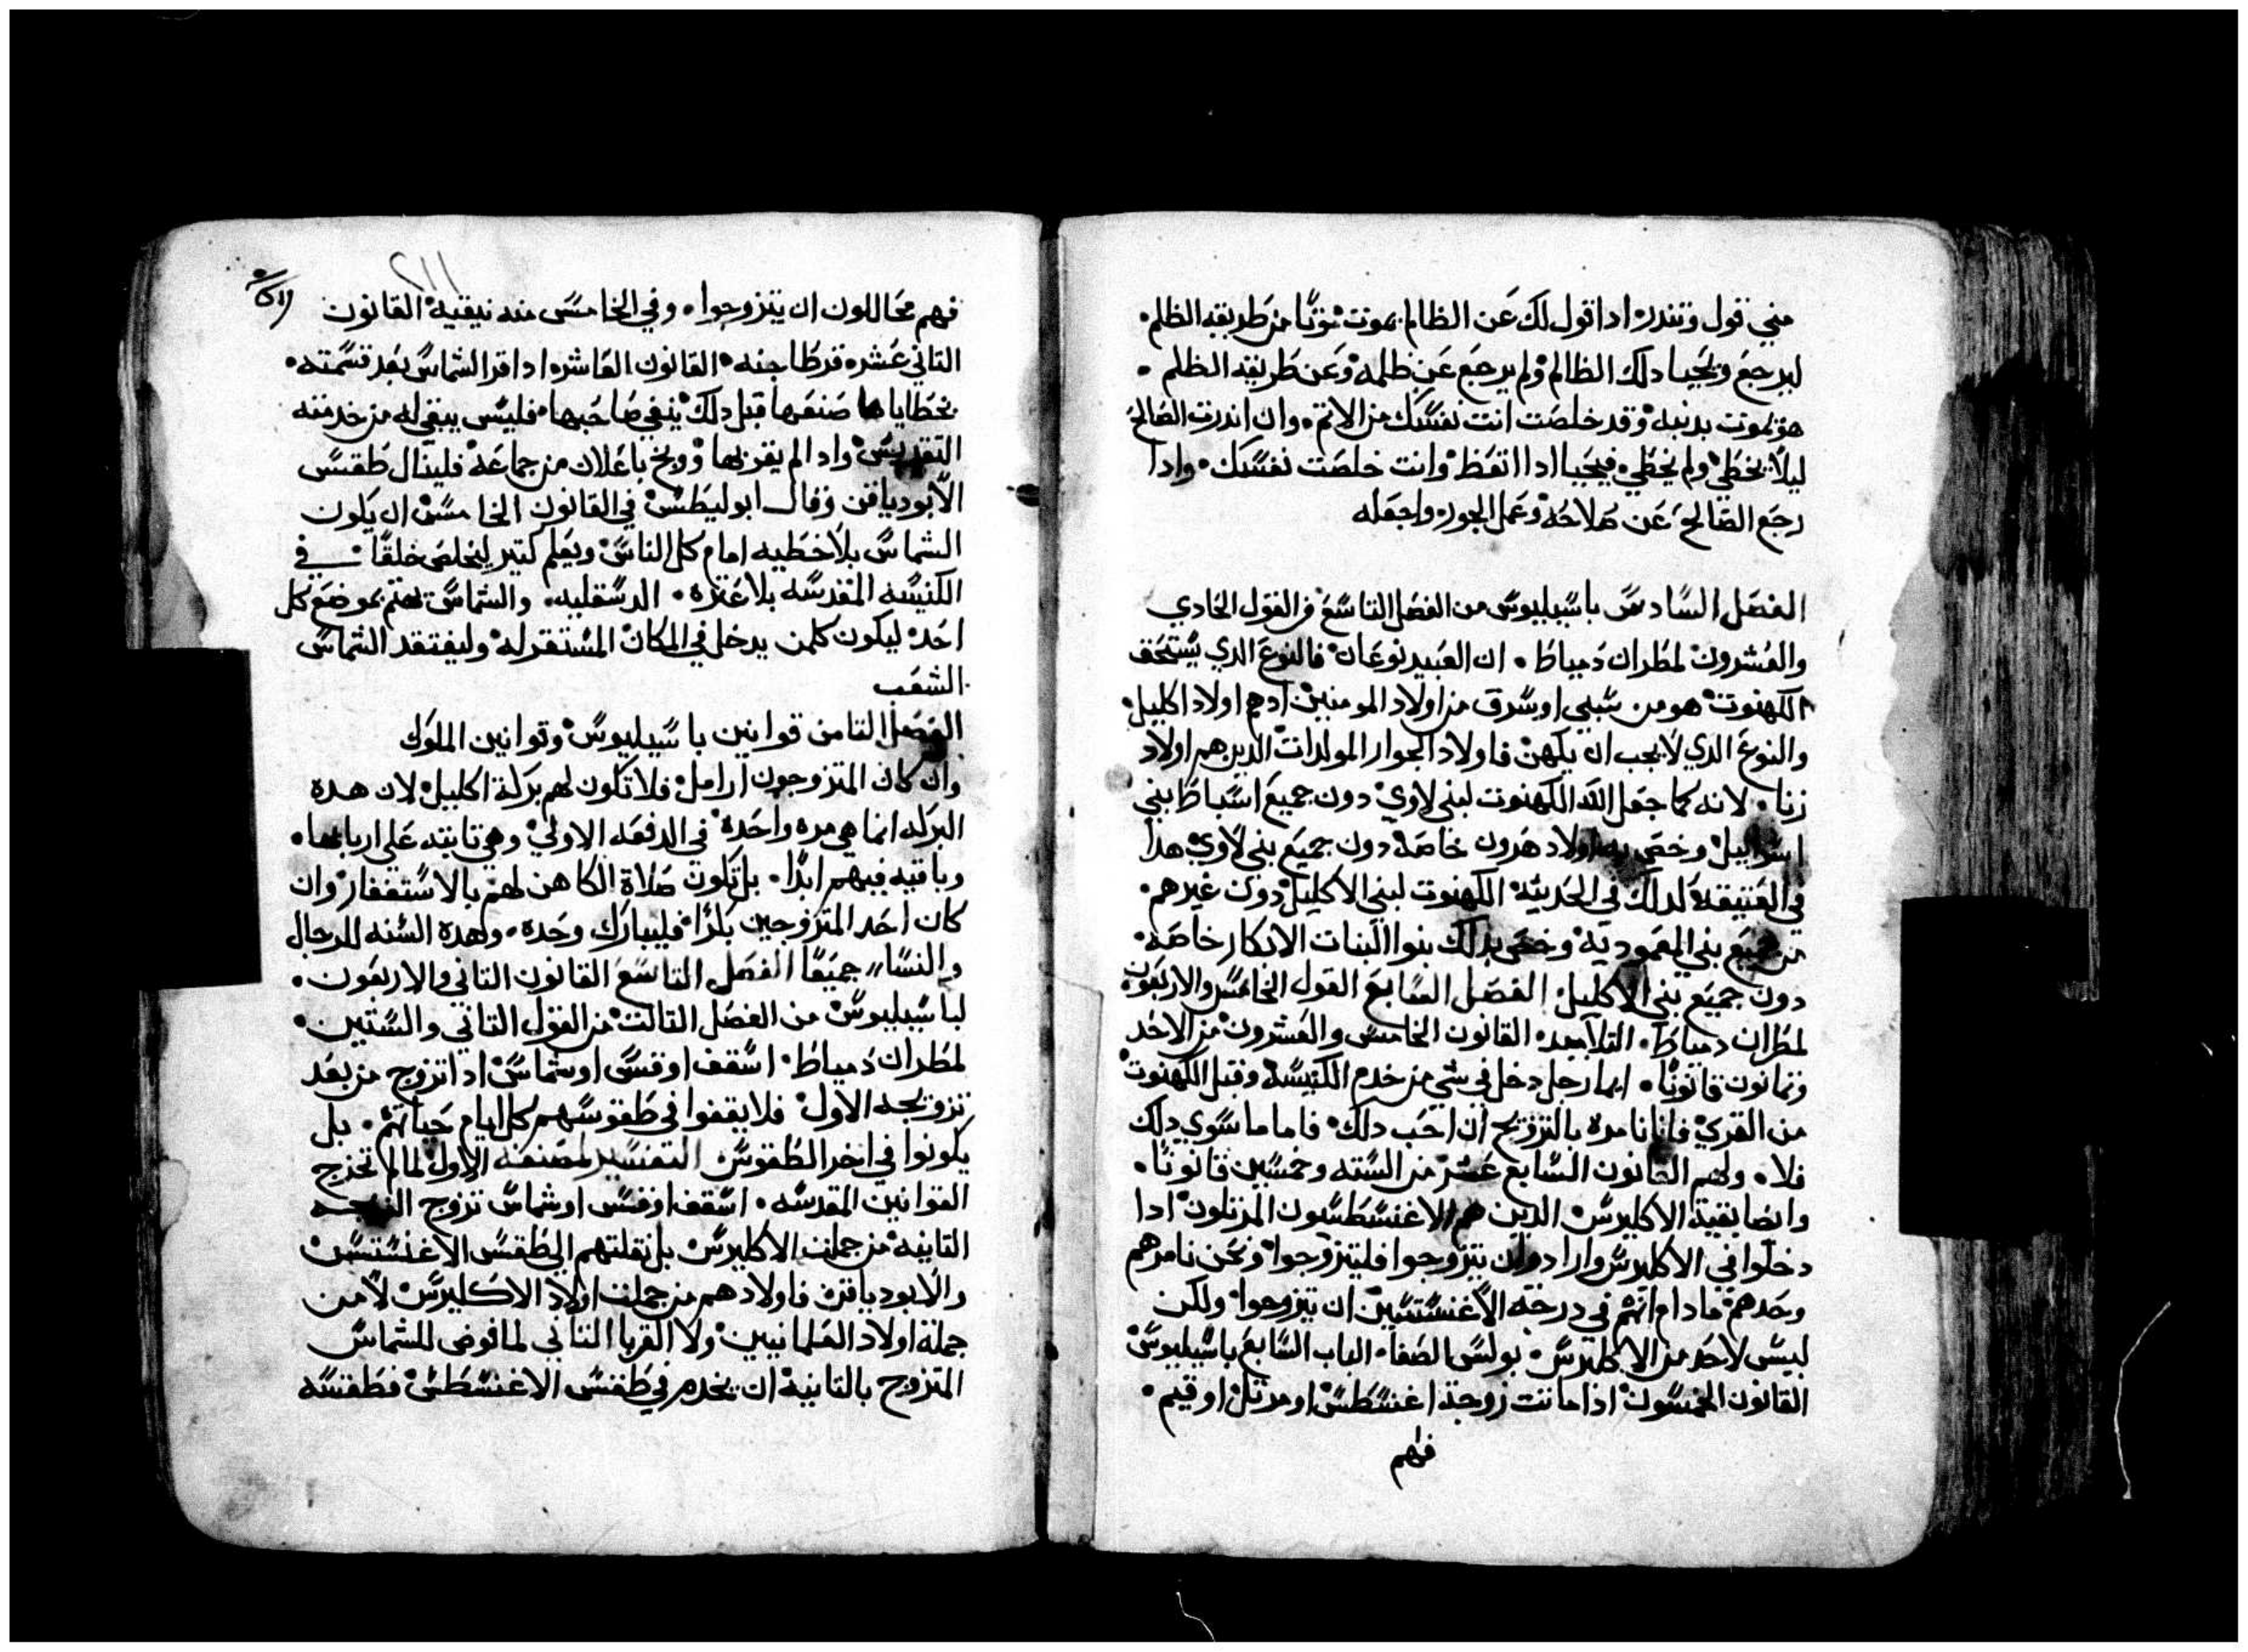 مني قول وتندر اداقول لك عن الظالم بموت موتًا من طريقه الظلم.
ليرجع ويحيا دلك الظالم ولم يرجع عن ظلمه وعن طريقه الظلم.
هو يموت بدنبه وقد خلصت انت نفسك من الاتم. وان اندرت الصالح
ليلا يخطي ولم يخطي. فيحيا ادا اتعظ وانت خلصت نفسك. وادا
رجع الصالح عن صلاحه وعمل الجور. واجعله
الفصل السادس باسيليوس من الفصل التاسع في القول الحادي
والعشرون لمطران دمياط. ان العبيد نوعان فالنوع الدي يستحق
الكهنوت هو من سُبي او سُرق من اولاد المومنين ادهم اولاد اكليل.
والنوع الدي لا يجب ان يكهن فاولاد الجوار المولدات الدين هم اولاد
زنا. لانه كما جعل الله الكهنوت لبني لاوي دون جميع اسباط بني
اسراييل وخص به اولاد هرون خاصة دون جميع بني لاوي هدا
في العتيقة كدلك في الحديثة الكهنوت لبني الاكليل دون غيرهم.
من جميع بني المعمودية وخص بدلك بنوا البنات الابكار خاصه.
دون جميع بني الاكليل. الفصل السابع القول الخامس والاربعون
لمطران دمياط. التلاميد القانون الخامس والعشرون من الاحد
وتمانون قانونًا. ايما رجل دخل في شي من خدم الكنيسة وقبل الكهنوت
من القري فانا نامره بالتزويج ان احب دلك. فاما ما سوي دلك
فلا. ولهم القانون السابع عشر من السته وخمسين قانونًا.
وايضا بقية الاكليرس الدين هم الاغنسطسون المرتلون ادا
دخلوا في الاكليرس وارادوا ان يتزوجوا فليتزوجوا ونحن نامرهم
وحدهم ما دام انهم في درجة الاغنستسين ان يتزوجوا ولكن
ليس لاحد من الاكليرس. بولس الصفا. الباب السابع باسيليوس
القانون الخمسون اداماتت زوجة اغنسطس او مرتل او قيم.
فهم
٢١١
فهم محاللون ان يتزوجوا. وفي الخامس منه نيقية القانون
التاني عشر. قرطاجنه. القانون العاشر. ادا اقر الشماس بعد قسمته.
بخطايا ها صنعها قبل دلك ينفي صاحبها. فليس يبقي له من خدمته
التقديس وادا لم يقر بها ووبخ باعلان من جماعة فلينال طقس
الابودياقن وقال ابوليطس في القانون الخامس ان يكون
الشماس بلا خطيه امام كل الناس ويعلم كتير ليخلص خلقًا في
الكنيسه المقدسه بلا عثره. الدسقليه. والشماس يهتم بموضع كل
احد ليكون كلمن يدخل في المكان المستقر له وليفتقد الشماس
الشعب
الفصل التامن قوانين باسيليوس وقوانين الملوك
وان كان المتزوجون ارامل فلا تكون لهم بركة اكليل لان هده
البركه انما هي مره واحدة في الدفعه الاولي وهي تابته علي اربابها.
وباقيه فيهم ابدًا. بل تكون صلاة الكاهن لهم بالاستغفار وان
كان احد المتزوجين بكرًا. فليبارك وحده. وهده السنه للرجال
والنسا جميعًا الفصل التاسع القانون التاني والاربعون.
لباسيليوس من الفصل التالت من القول التاني والستين.
لمطران دمياط. اسقف او قس او شماس اداتزوج من بعد
تزويجه الاول فلا يقفوا في طقوسهم كل ايام حياتهم. بل
يكونوا في اخر الطقوس التفسير لمصنفه الاول لما لم تخرج
القوانين المقدسه. اسقف او قس او شماس تزوج الزيجه
التانيه من جملت الاكليرس بل نقلتهم الي طقس الاغنستس
والابودياقن فاولادهم من جملت اولاد الاكليرس لا من
جملة اولاد العلمانيين ولا القربا التاني لما فوض للشماس
المتزوج بالتانية ان يخدم في طقس الاغنسطس فطقسه